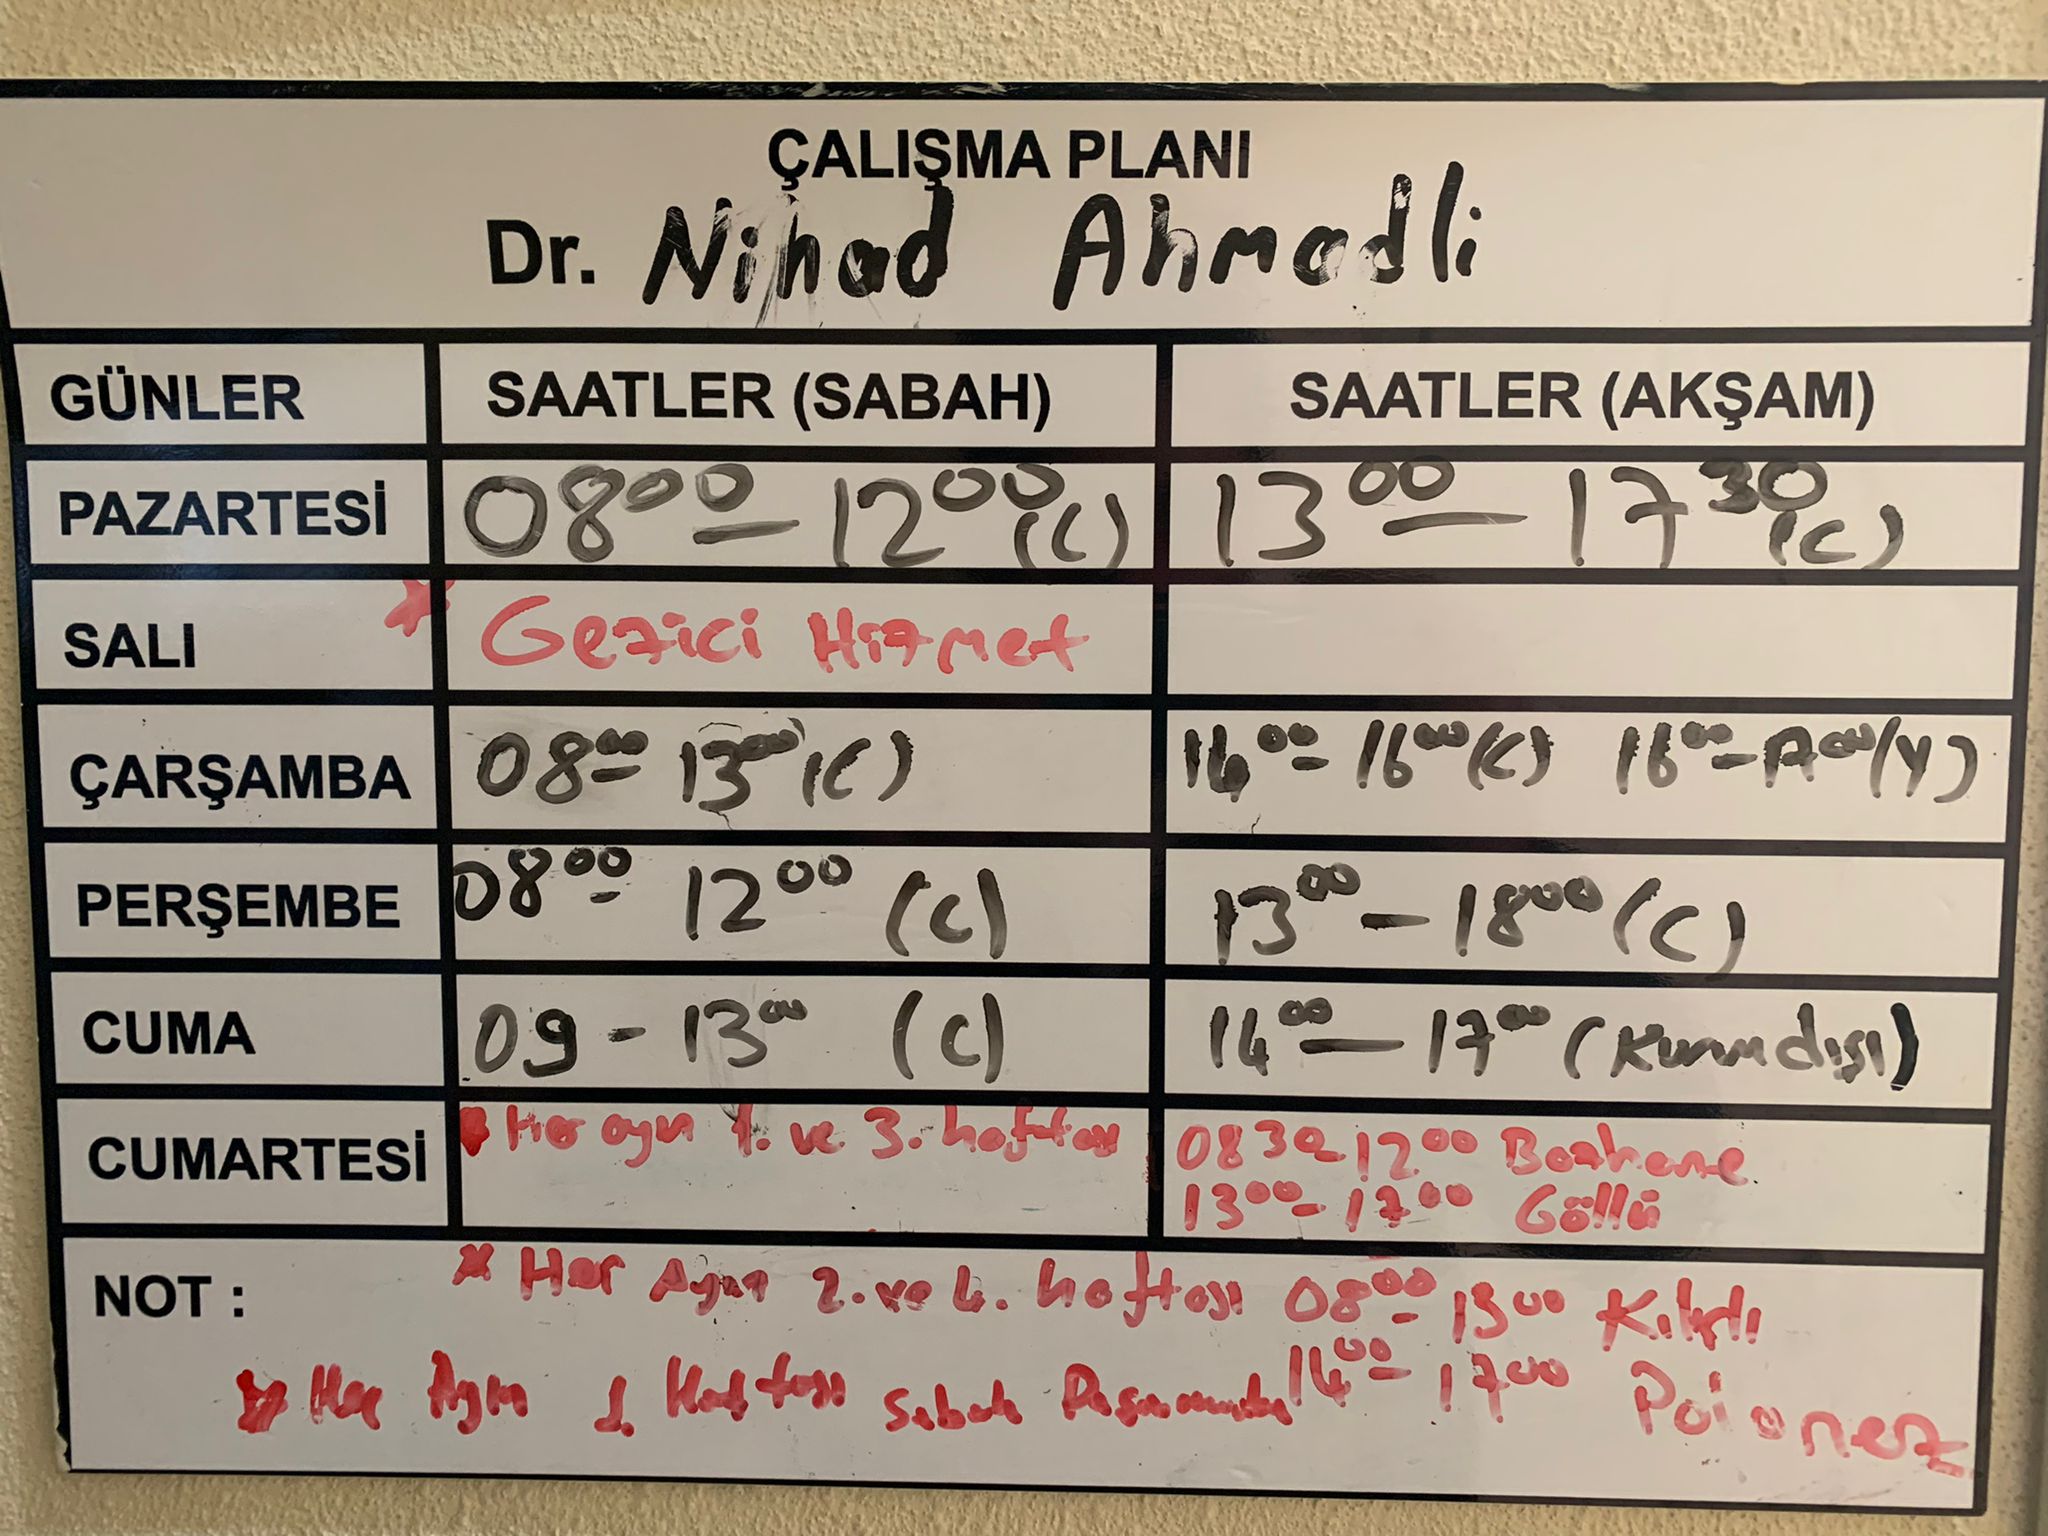 ÇALIŞMA PLANI
Dr. Nihad Ahmadli
GÜNLER SAATLER (SABAH) SAATLER (AKŞAM)
PAZARTESİ 08 00 - 12 00 (C) 13 00 - 17 30 (C)
SALI * Gezici Hizmet
ÇARŞAMBA 08 00 - 13 00 (C) 14 00 - 16 00 (C) 16 00 - 17 00 (Y)
PERŞEMBE 08 00 - 12 00 (C) 13 00 - 18 00 (C)
CUMA 09 - 13 00 (C) 14 00 - 17 00 (Kurum dışı)
CUMARTESİ * Her ayın 1. ve 3. haftası 08 30 - 12 00 Bozhane
13 00 - 17 00 Göllü
NOT : * Her Ayın 2. ve 4. haftası 08 00 - 13 00 Kılıçlı
* Her Ayın 1. Haftası Sabah 14 00 - 17 00 Polonez